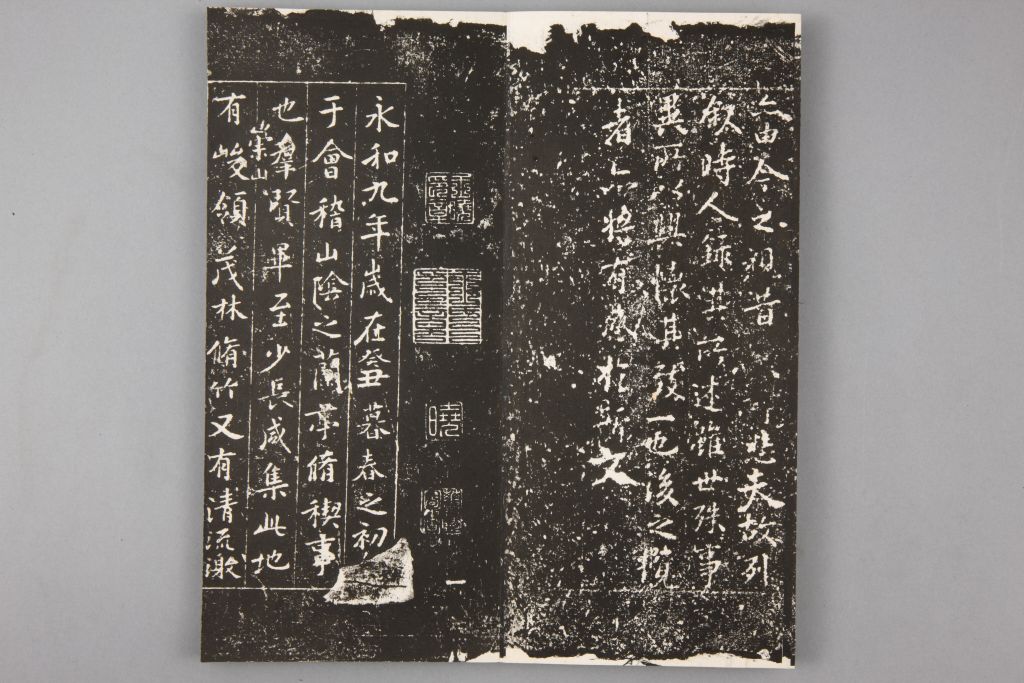 亦由今之視昔悲夫故列
叙時人錄其所述雖世殊事
異所以興懷其致一也後之攬
者亦將有感於斯文
曉
一
永和九年歲在癸丑暮春之初
于會稽山陰之蘭亭脩稧事
也羣賢畢至少長咸集此地
有崇山峻領茂林脩竹又有清流激